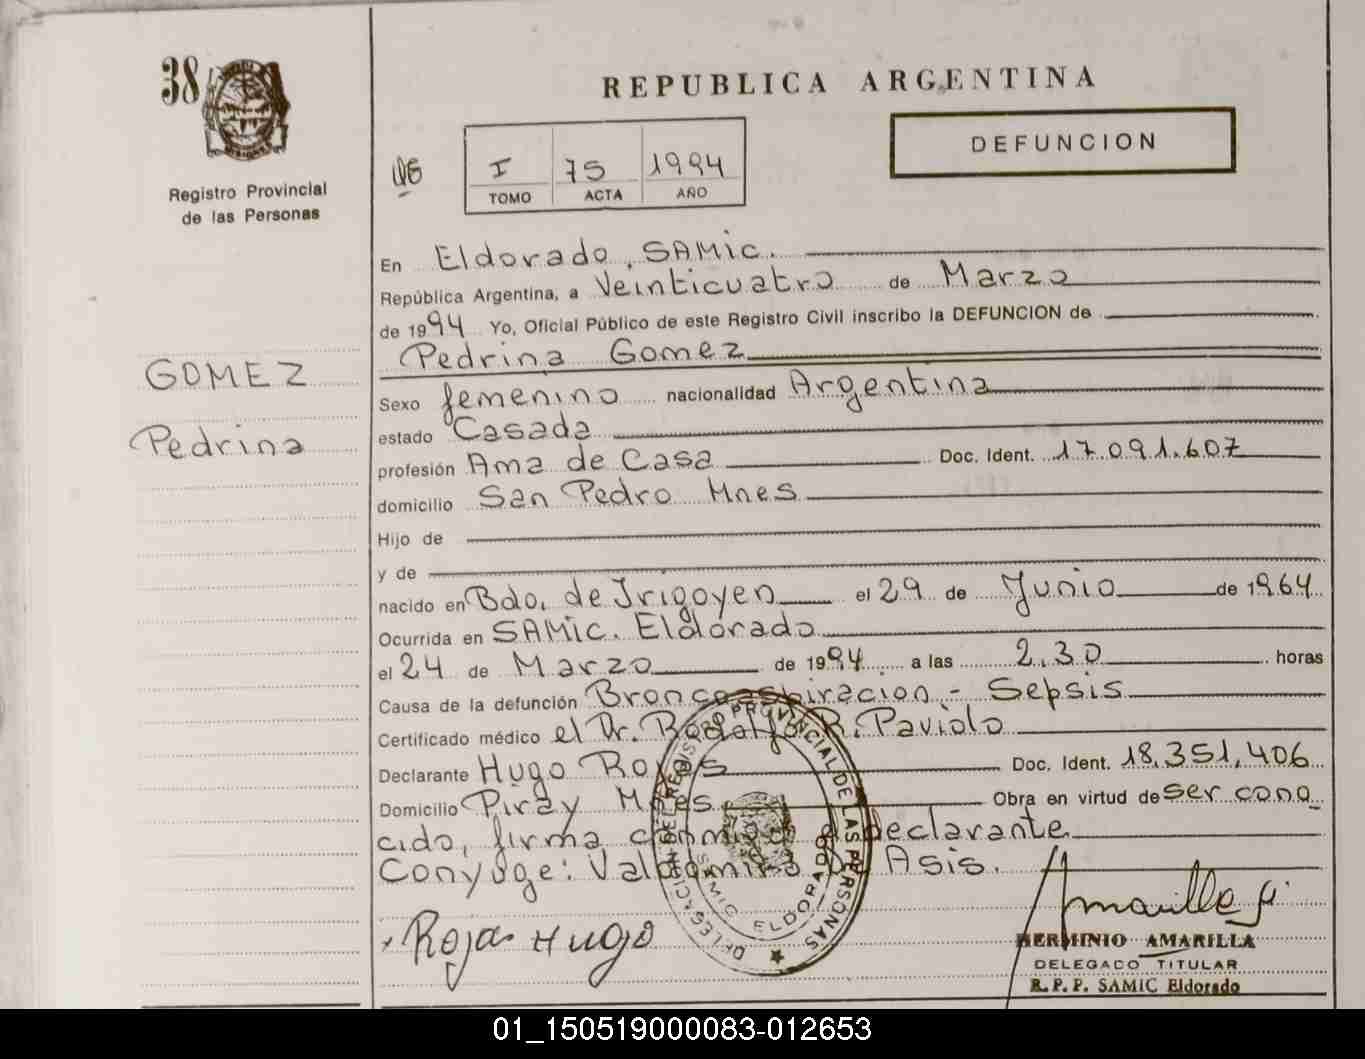 38
REPUBLICA ARGENTINA
DEFUNCION
I 75 1994
TOMO ACTA AÑO
Registro Provincial
de las Personas
En Eldorado, SAMic.
República Argentina, a Veinticuatro de Marzo
de 1994 Yo, Oficial Público de este Registro Civil inscribo la DEFUNCION de
Pedrina Gomez
GOMEZ
Pedrina
Sexo femenino nacionalidad Argentina
estado Casada
profesión Ama de Casa Doc. Ident. 17.091.607
domicilio San Pedro Mnes
Hijo de
y de
nacido en Bdo. de Irigoyen el 29 de Junio de 1964
Ocurrida en SAMic. Eldorado
el 24 de Marzo de 1994 a las 2.30 horas
Causa de la defunción Broncoaspiracion - Sepsis
Certificado médico el Dr. Rodolfo R. Paviolo
Declarante Hugo Rojas Doc. Ident. 18.351.406
Domicilio Piray Mnes Obra en virtud de ser cono
cido, firma conmigo el declarante
Conyuge: Valdomiro De Asis.
Rojas Hugo
REGISTRO PROVINCIAL DE LAS PERSONAS
DELEGACION
SAMIC ELDORADO
HERMINIO AMARILLA
DELEGADO TITULAR
R.P.P. SAMIC Eldorado
01_150519000083-012653